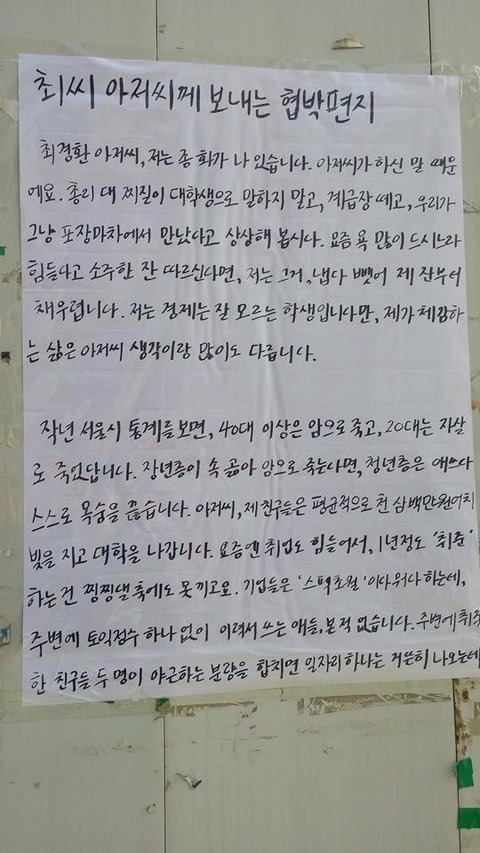 최씨 아저씨께 보내는 협박편지
최경환 아저씨, 저는 좀 화가 나 있습니다. 아저씨가 하신 말 때문
에요. 총리 대 찌질이 대학생으로 말하지 말고, 계급장 떼고, 우리가
그냥 포장마차에서 만났다고 상상해 봅시다. 요즘 욕 많이 드시느라
힘들다고 소주 한 잔 따르신다면, 저는 그거, 냅다 뺏어 제 잔부터
채우렵니다. 저는 경제는 잘 모르는 학생입니다만, 제가 체감하
는 삶은 아저씨 생각이랑 많이도 다릅니다.
작년 서울시 통계를 보면, 40대 이상은 암으로 죽고, 20대는 자살
로 죽었답니다. 장년층이 속 곪아 암으로 죽는다면, 청년층은 애쓰다
스스로 목숨을 끊습니다. 아저씨, 제 친구들은 평균적으로 천 삼백만원어치
빚을 지고 대학을 나갑니다. 요즘엔 취업도 힘들어서, 1년정도 '취준'
하는건 찡찡댈 축에도 못 끼고요. 기업들은 '스펙초월'이다 뭐다 하는데,
주변에 토익점수 하나 없이 이력서 쓰는 애들, 본 적 없습니다. 주변에 취직
한 친구들 두 명이 야근하는 분량을 합치면 일자리 하나는 거뜬히 나오는데